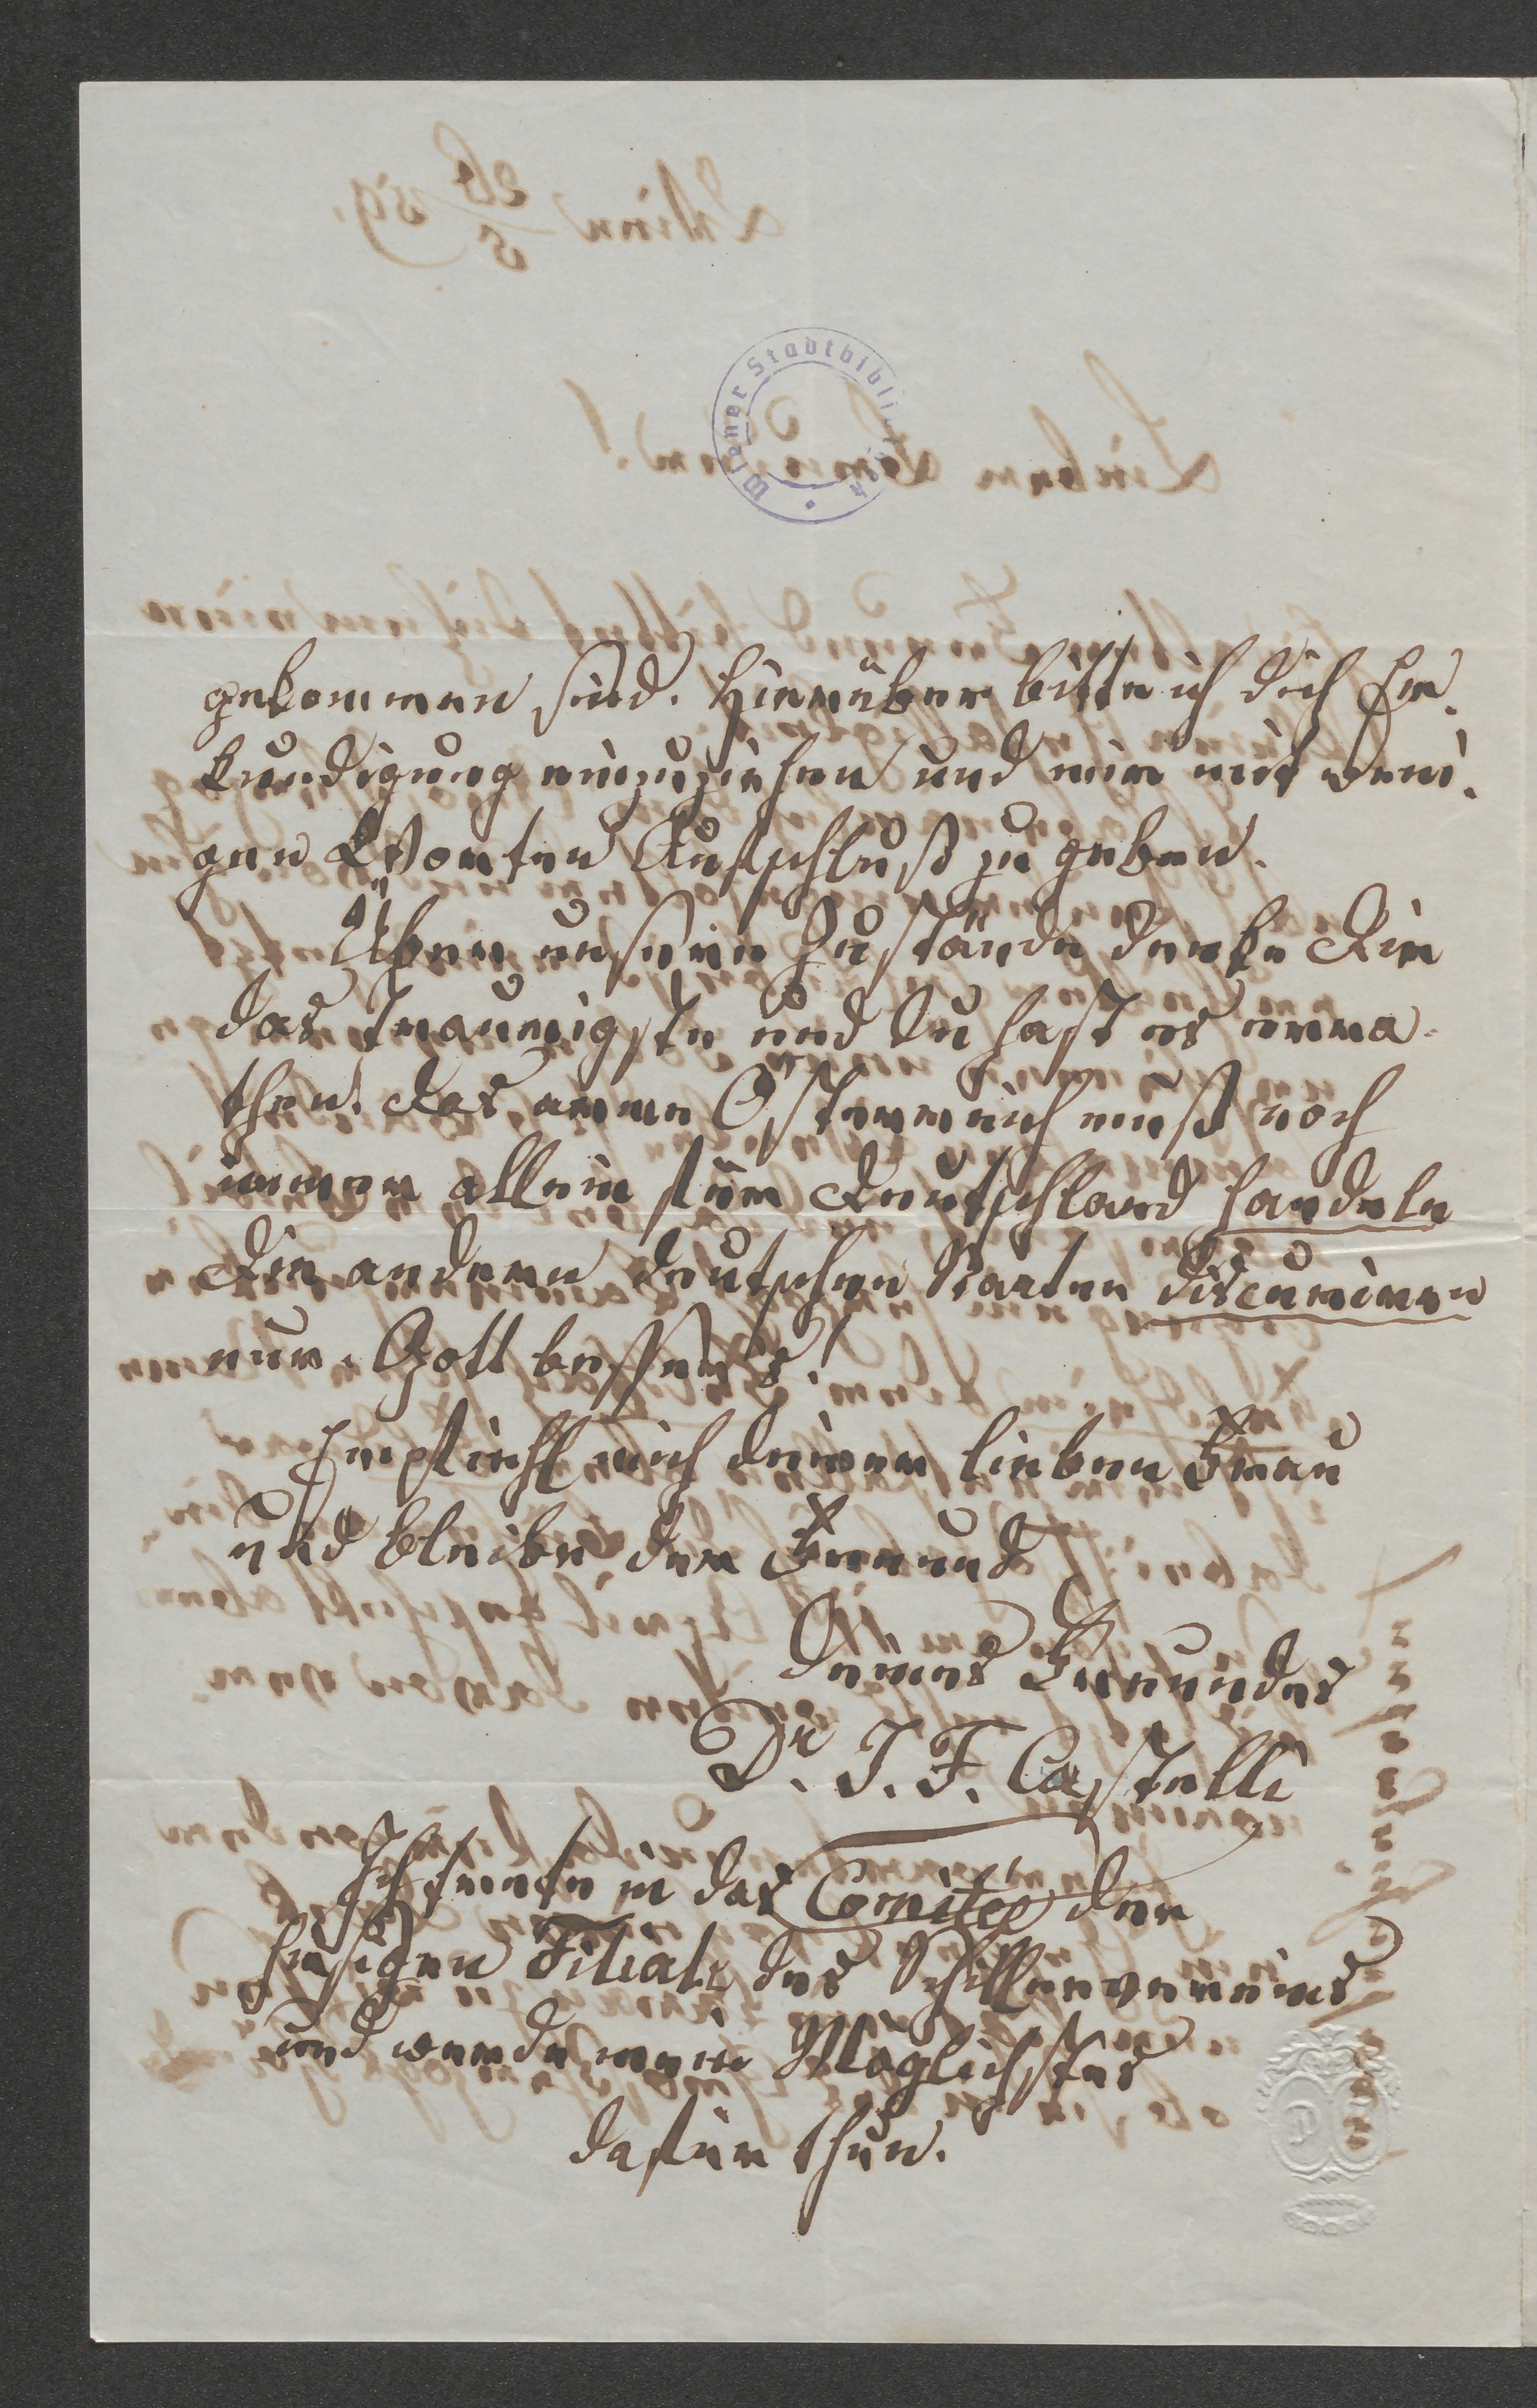 Wiener Stadtbibliothek
gekommen sind. Hierüber bitte ich dich Er-
kundigung einzuziehen und mir mit weni-
gen Worten Aufschluß zu geben.
Über unsere Zustände denke Dir
das Traurigste und du hast es erra-
then. das arme Österreich muß noch
immer allein für Deutschland handeln
Die andern deutschen Staaten discurriren
nur. Gott besser's!
Empfiehl mich deiner lieben Frau
und bleibe der Freund
Deines Freundes
Dr. J. F. Castelli
Ich trete in das Comitee der
hiesigen Filiale des Schillervereins
und werde mein Möglichstes
dafür thun.